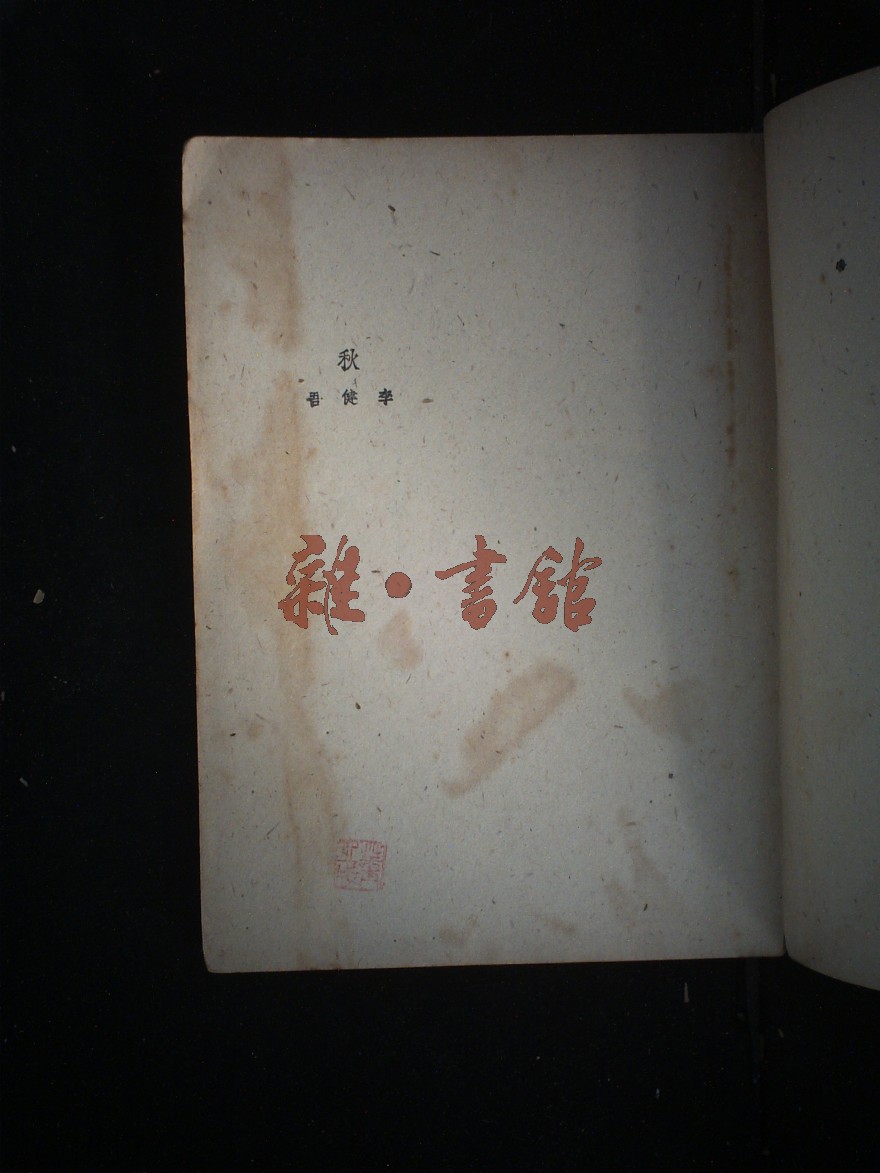 秋
李健吾
雜·書館